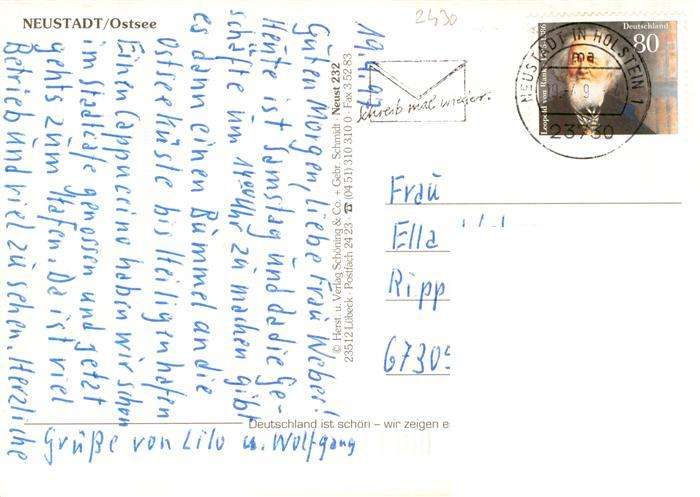 NEUSTADT/Ostsee
2430
19.4.97
Guten Morgen, liebe Frau Weber!
Heute ist Samstag und da die Ge-
schäfte um 14⁰⁰ Uhr zu machen gibt
es dann einen Bummel an die
Ostseeküste bis Heiligenhafen
Einen Cappuccino haben wir schon
im Stadtcafe genossen und jetzt
gehts zum Hafen. Da ist viel
Betrieb und viel zu sehen. Herzliche
Grüße von Lilo u. Wolfgang
© Herst. u. Verlag Schöning & Co. + Gebr. Schmidt · Neust 232
23512 Lübeck · Postfach 24 23 · ☎ (04 51) 310 310 0 · Fax 3 52 83
Deutschland ist schön – wir zeigen e
Schreib mal wieder.
NEUSTADT IN HOLSTEIN 1
ma
23730
Leopold von Ranke
Deutschland
80
Frau
Ella
Ripp
6730